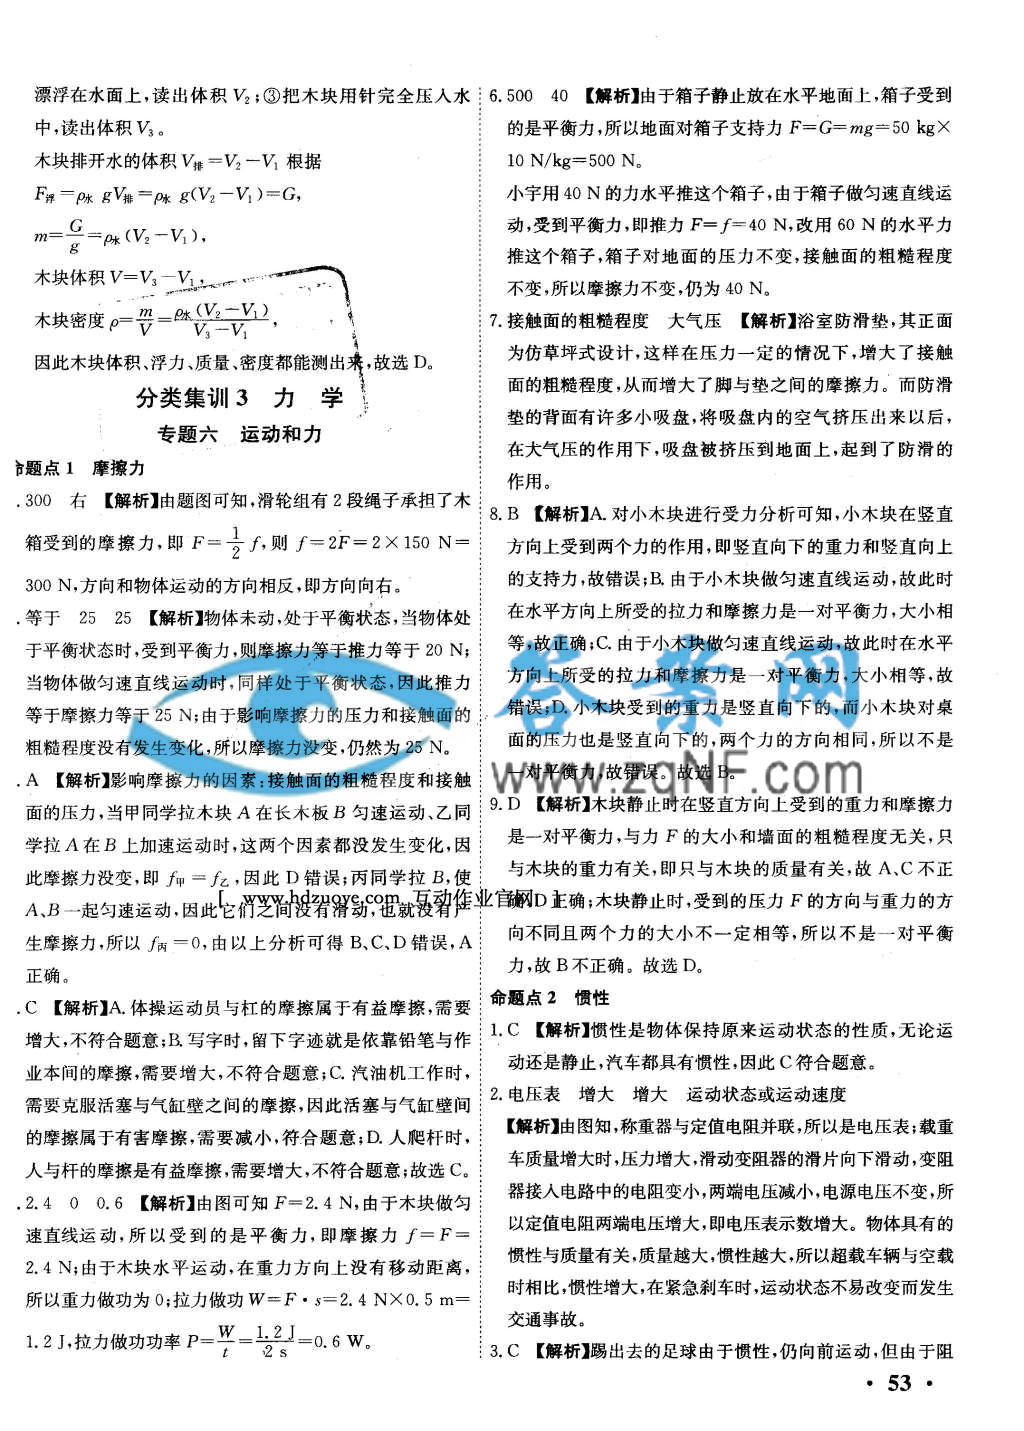 漂浮在水面上,读出体积 V₂;③把木块用针完全压入水
中,读出体积 V₃。
木块排开水的体积 V排=V₂-V₁ 根据
F浮=ρ水 gV排=ρ水 g(V₂-V₁)=G,
m=G/g=ρ水(V₂-V₁),
木块体积 V=V₃-V₁,
木块密度 ρ=m/V=ρ水(V₂-V₁)/(V₃-V₁),
因此木块体积、浮力、质量、密度都能测出来,故选 D。
分类集训 3 力 学
专题六 运动和力
命题点 1 摩擦力
. 300 右 【解析】由题图可知,滑轮组有 2 段绳子承担了木
箱受到的摩擦力,即 F=1/2 f,则 f=2F=2×150 N=
300 N,方向和物体运动的方向相反,即方向向右。
. 等于 25 25 【解析】物体未动,处于平衡状态,当物体处
于平衡状态时,受到平衡力,则摩擦力等于推力等于 20 N;
当物体做匀速直线运动时,同样处于平衡状态,因此推力
等于摩擦力等于 25 N;由于影响摩擦力的压力和接触面的
粗糙程度没有发生变化,所以摩擦力没变,仍然为 25 N。
. A 【解析】影响摩擦力的因素:接触面的粗糙程度和接触
面的压力,当甲同学拉木块 A 在长木板 B 匀速运动、乙同
学拉 A 在 B 上加速运动时,这两个因素都没发生变化,因
此摩擦力没变,即 f甲=f乙,因此 D 错误;丙同学拉 B,使
A、B 一起匀速运动,因此它们之间没有滑动,也就没有产
生摩擦力,所以 f丙=0,由以上分析可得 B、C、D 错误,A
正确。
. C 【解析】A. 体操运动员与杠的摩擦属于有益摩擦,需要
增大,不符合题意;B. 写字时,留下字迹就是依靠铅笔与作
业本间的摩擦,需要增大,不符合题意;C. 汽油机工作时,
需要克服活塞与气缸壁之间的摩擦,因此活塞与气缸壁间
的摩擦属于有害摩擦,需要减小,符合题意;D. 人爬杆时,
人与杆的摩擦是有益摩擦,需要增大,不符合题意;故选 C。
. 2.4 0 0.6 【解析】由图可知 F=2.4 N,由于木块做匀
速直线运动,所以受到的是平衡力,即摩擦力 f=F=
2.4 N;由于木块水平运动,在重力方向上没有移动距离,
所以重力做功为 0;拉力做功 W=F·s=2.4 N×0.5 m=
1.2 J,拉力做功功率 P=W/t=1.2 J/2 s=0.6 W。
6. 500 40 【解析】由于箱子静止放在水平地面上,箱子受到
的是平衡力,所以地面对箱子支持力 F=G=mg=50 kg×
10 N/kg=500 N。
小宇用 40 N 的力水平推这个箱子,由于箱子做匀速直线运
动,受到平衡力,即推力 F=f=40 N,改用 60 N 的水平力
推这个箱子,箱子对地面的压力不变,接触面的粗糙程度
不变,所以摩擦力不变,仍为 40 N。
7. 接触面的粗糙程度 大气压 【解析】浴室防滑垫,其正面
为仿草坪式设计,这样在压力一定的情况下,增大了接触
面的粗糙程度,从而增大了脚与垫之间的摩擦力。而防滑
垫的背面有许多小吸盘,将吸盘内的空气挤压出来以后,
在大气压的作用下,吸盘被挤压到地面上,起到了防滑的
作用。
8. B 【解析】A. 对小木块进行受力分析可知,小木块在竖直
方向上受到两个力的作用,即竖直向下的重力和竖直向上
的支持力,故错误;B. 由于小木块做匀速直线运动,故此时
在水平方向上所受的拉力和摩擦力是一对平衡力,大小相
等,故正确;C. 由于小木块做匀速直线运动,故此时在水平
方向上所受的拉力和摩擦力是一对平衡力,大小相等,故
错误;D. 小木块受到的重力是竖直向下的,而小木块对桌
面的压力也是竖直向下的,两个力的方向相同,所以不是
一对平衡力,故错误。故选 B。
9. D 【解析】木块静止时在竖直方向上受到的重力和摩擦力
是一对平衡力,与力 F 的大小和墙面的粗糙程度无关,只
与木块的重力有关,即只与木块的质量有关,故 A、C 不正
确,D 正确;木块静止时,受到的压力 F 的方向与重力的方
向不同且两个力的大小不一定相等,所以不是一对平衡
力,故 B 不正确。故选 D。
命题点 2 惯性
1. C 【解析】惯性是物体保持原来运动状态的性质,无论运
动还是静止,汽车都具有惯性,因此 C 符合题意。
2. 电压表 增大 增大 运动状态或运动速度
【解析】由图知,称重器与定值电阻并联,所以是电压表;载重
车质量增大时,压力增大,滑动变阻器的滑片向下滑动,变阻
器接入电路中的电阻变小,两端电压减小,电源电压不变,所
以定值电阻两端电压增大,即电压表示数增大。物体具有的
惯性与质量有关,质量越大,惯性越大,所以超载车辆与空载
时相比,惯性增大,在紧急刹车时,运动状态不易改变而发生
交通事故。
3. C 【解析】踢出去的足球由于惯性,仍向前运动,但由于阻
· 53 ·
答案网
www.zqNF.com
[ www.hdzuoye.com 互动作业官网 ]